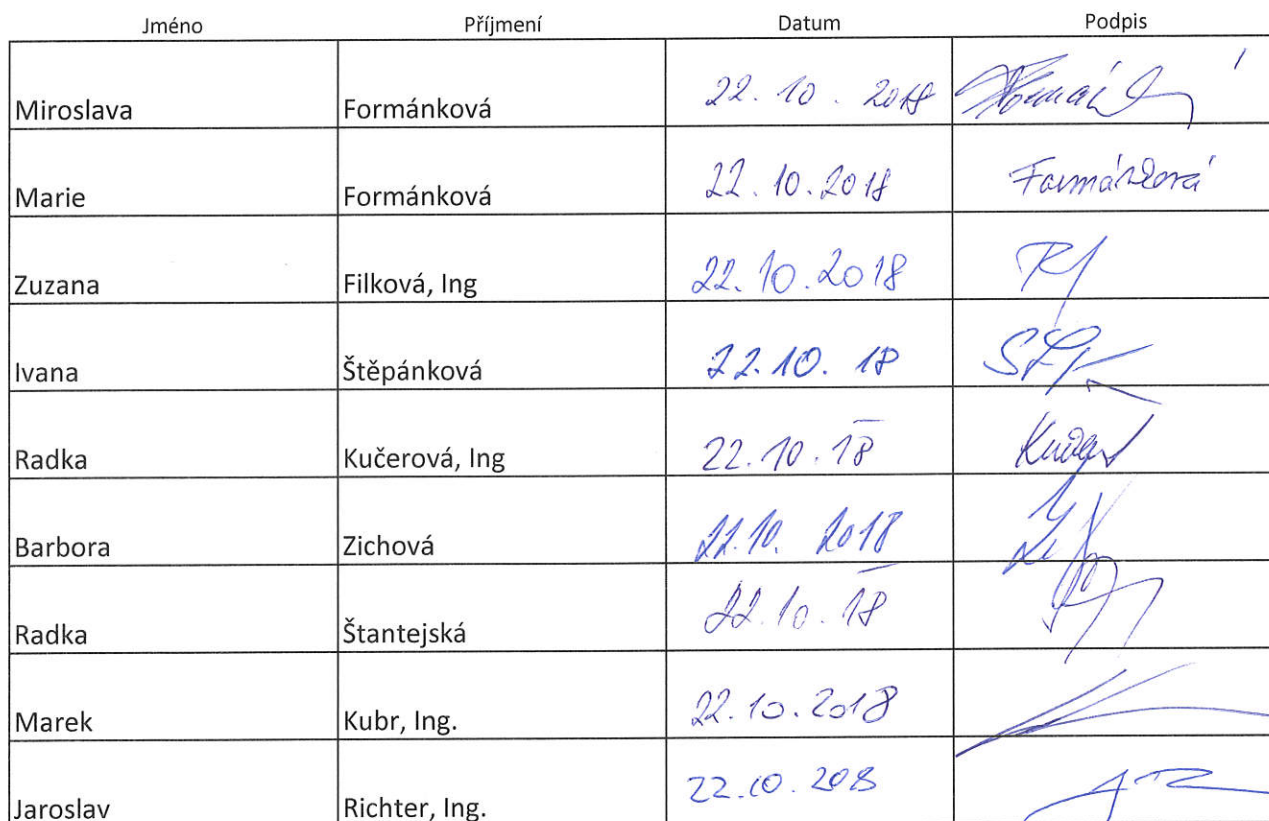 Jméno Příjmení Datum Podpis
Miroslava Formánková 22. 10. 2018
Marie Formánková 22. 10. 2018 Formánková
Zuzana Filková, Ing 22. 10. 2018
Ivana Štěpánková 22. 10. 18
Radka Kučerová, Ing 22. 10. 18
Barbora Zichová 22. 10. 2018
Radka Štantejská 22. 10. 18
Marek Kubr, Ing. 22. 10. 2018
Jaroslav Richter, Ing. 22. 10. 2018